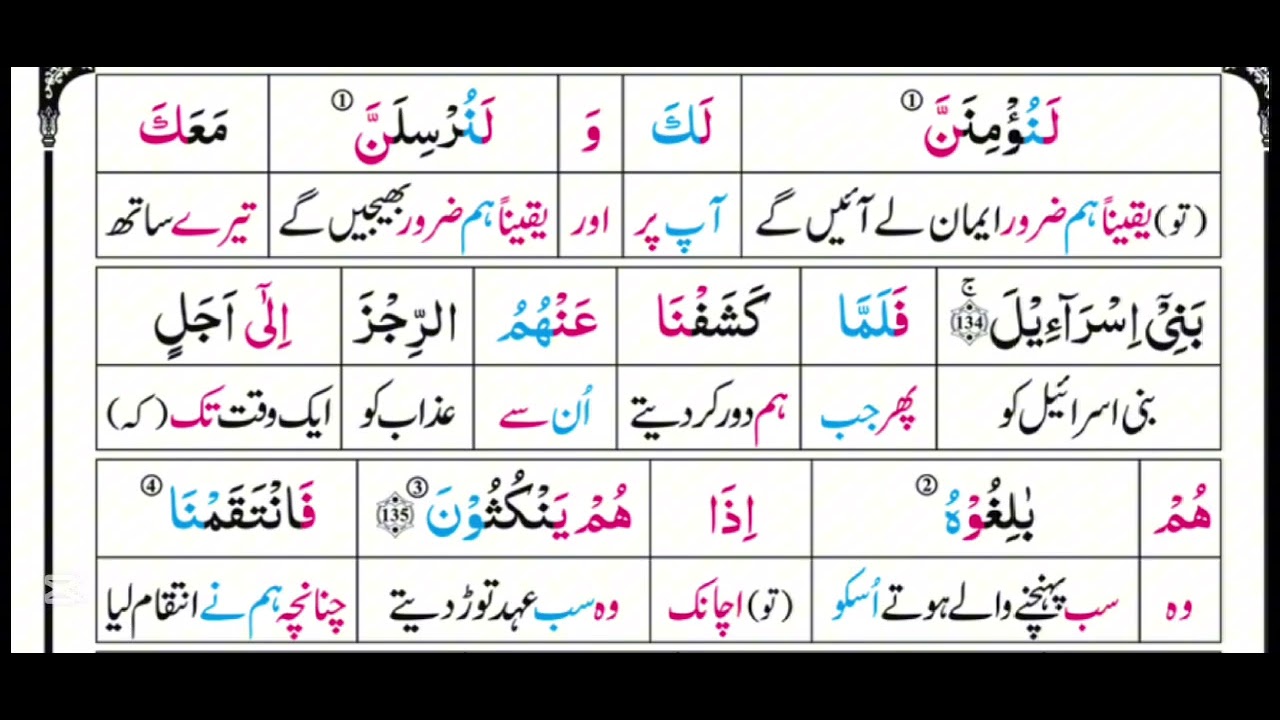 لَنُؤْمِنَنَّ ① لَكَ وَ لَنُرْسِلَنَّ ① مَعَكَ
(تو) یقیناً ہم ضرور ایمان لے آئیں گے آپ پر اور یقیناً ہم ضرور بھیجیں گے تیرے ساتھ
بَنِیْۤ اِسْرَآءِیْلَ ج 134 فَلَمَّا كَشَفْنَا عَنْهُمُ الرِّجْزَ اِلٰۤی اَجَلٍ
بنی اسرائیل کو پھر جب ہم دور کر دیتے اُن سے عذاب کو ایک وقت تک (کہ)
هُمْ بٰلِغُوْهُ ② اِذَا هُمْ یَنْكُثُوْنَ ③ 135 فَانْتَقَمْنَا ④
وہ سب پہنچنے والے ہوتے اُسکو (تو) اچانک وہ سب عہد توڑ دیتے چنانچہ ہم نے انتقام لیا